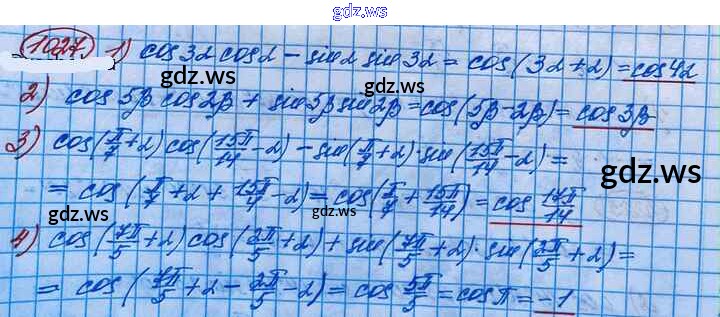 gdz.ws
1027) 1) cos3α cosα − sinα sin3α = cos(3α+α) = cos4α
gdz.ws gdz.ws
2) cos5β cos2β + sin5β sin2β = cos(5β−2β) = cos3β
3) cos(π/7+α) cos(15π/14−α) − sin(π/7+α)·sin(15π/14−α) =
gdz.ws
= cos(π/7+α+15π/14−α) = cos(π/7+15π/14) = cos 17π/14
gdz.ws gdz.ws
4) cos(7π/5+α) cos(2π/5+α) + sin(7π/5+α)·sin(2π/5+α) =
gdz.ws
= cos(7π/5+α−2π/5−α) = cos 5π/5 = cosπ = −1
gdz.ws